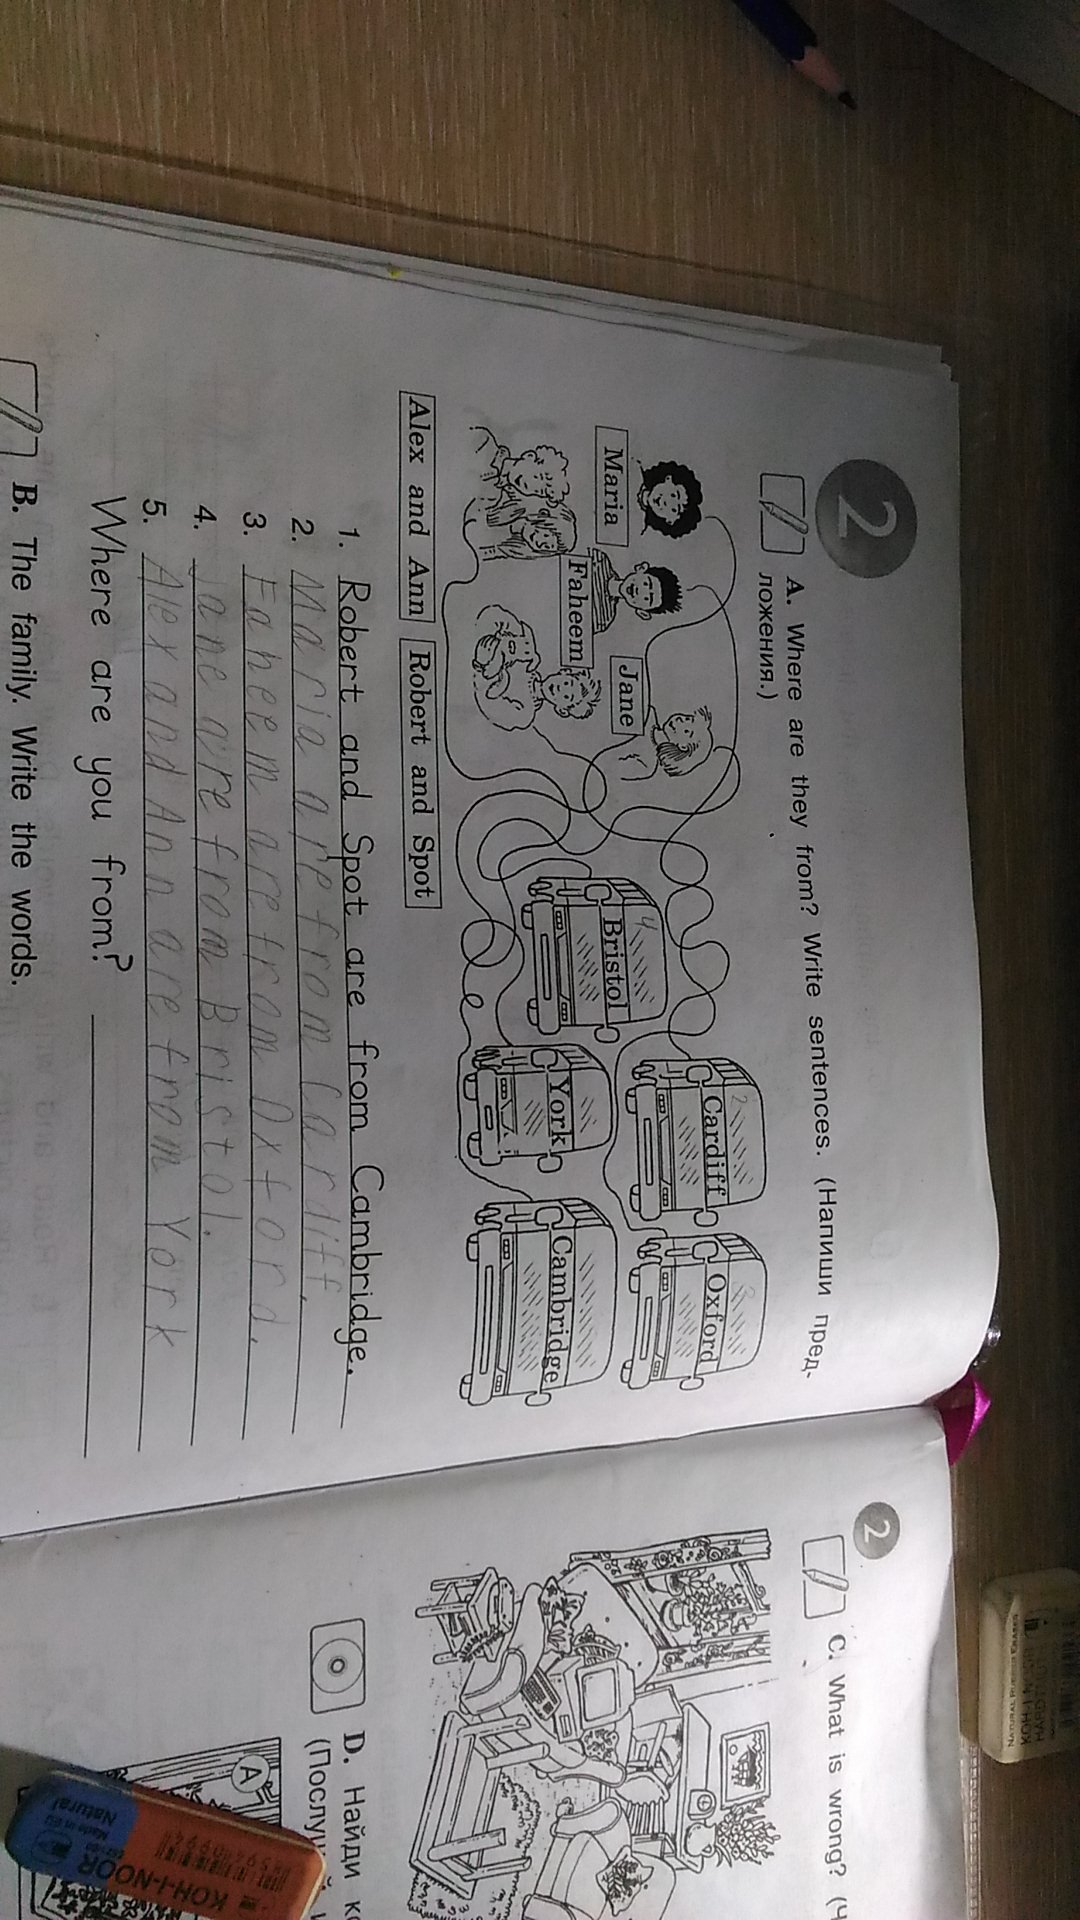 2
A. Where are they from? Write sentences. (Напиши пред-
ложения.)
Maria
Faheem
Jane
Alex and Ann
Robert and Spot
4
Bristol
York
2
Cardiff
3
Oxford
Cambridge
1. Robert and Spot are from Cambridge.
2. Maria are from Cardiff.
3. Faheem are from Oxford.
4. Jane are from Bristol.
5. Alex and Ann are from York
Where are you from?
B. The family. Write the words.
2
C. What is wrong? (
D. Найди
A
KOH-I-NOOR
Made in EU
Natural
KOH-I-NOOR